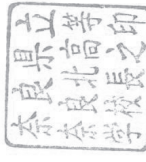 奈良県立
奈良北高等
学校長之印